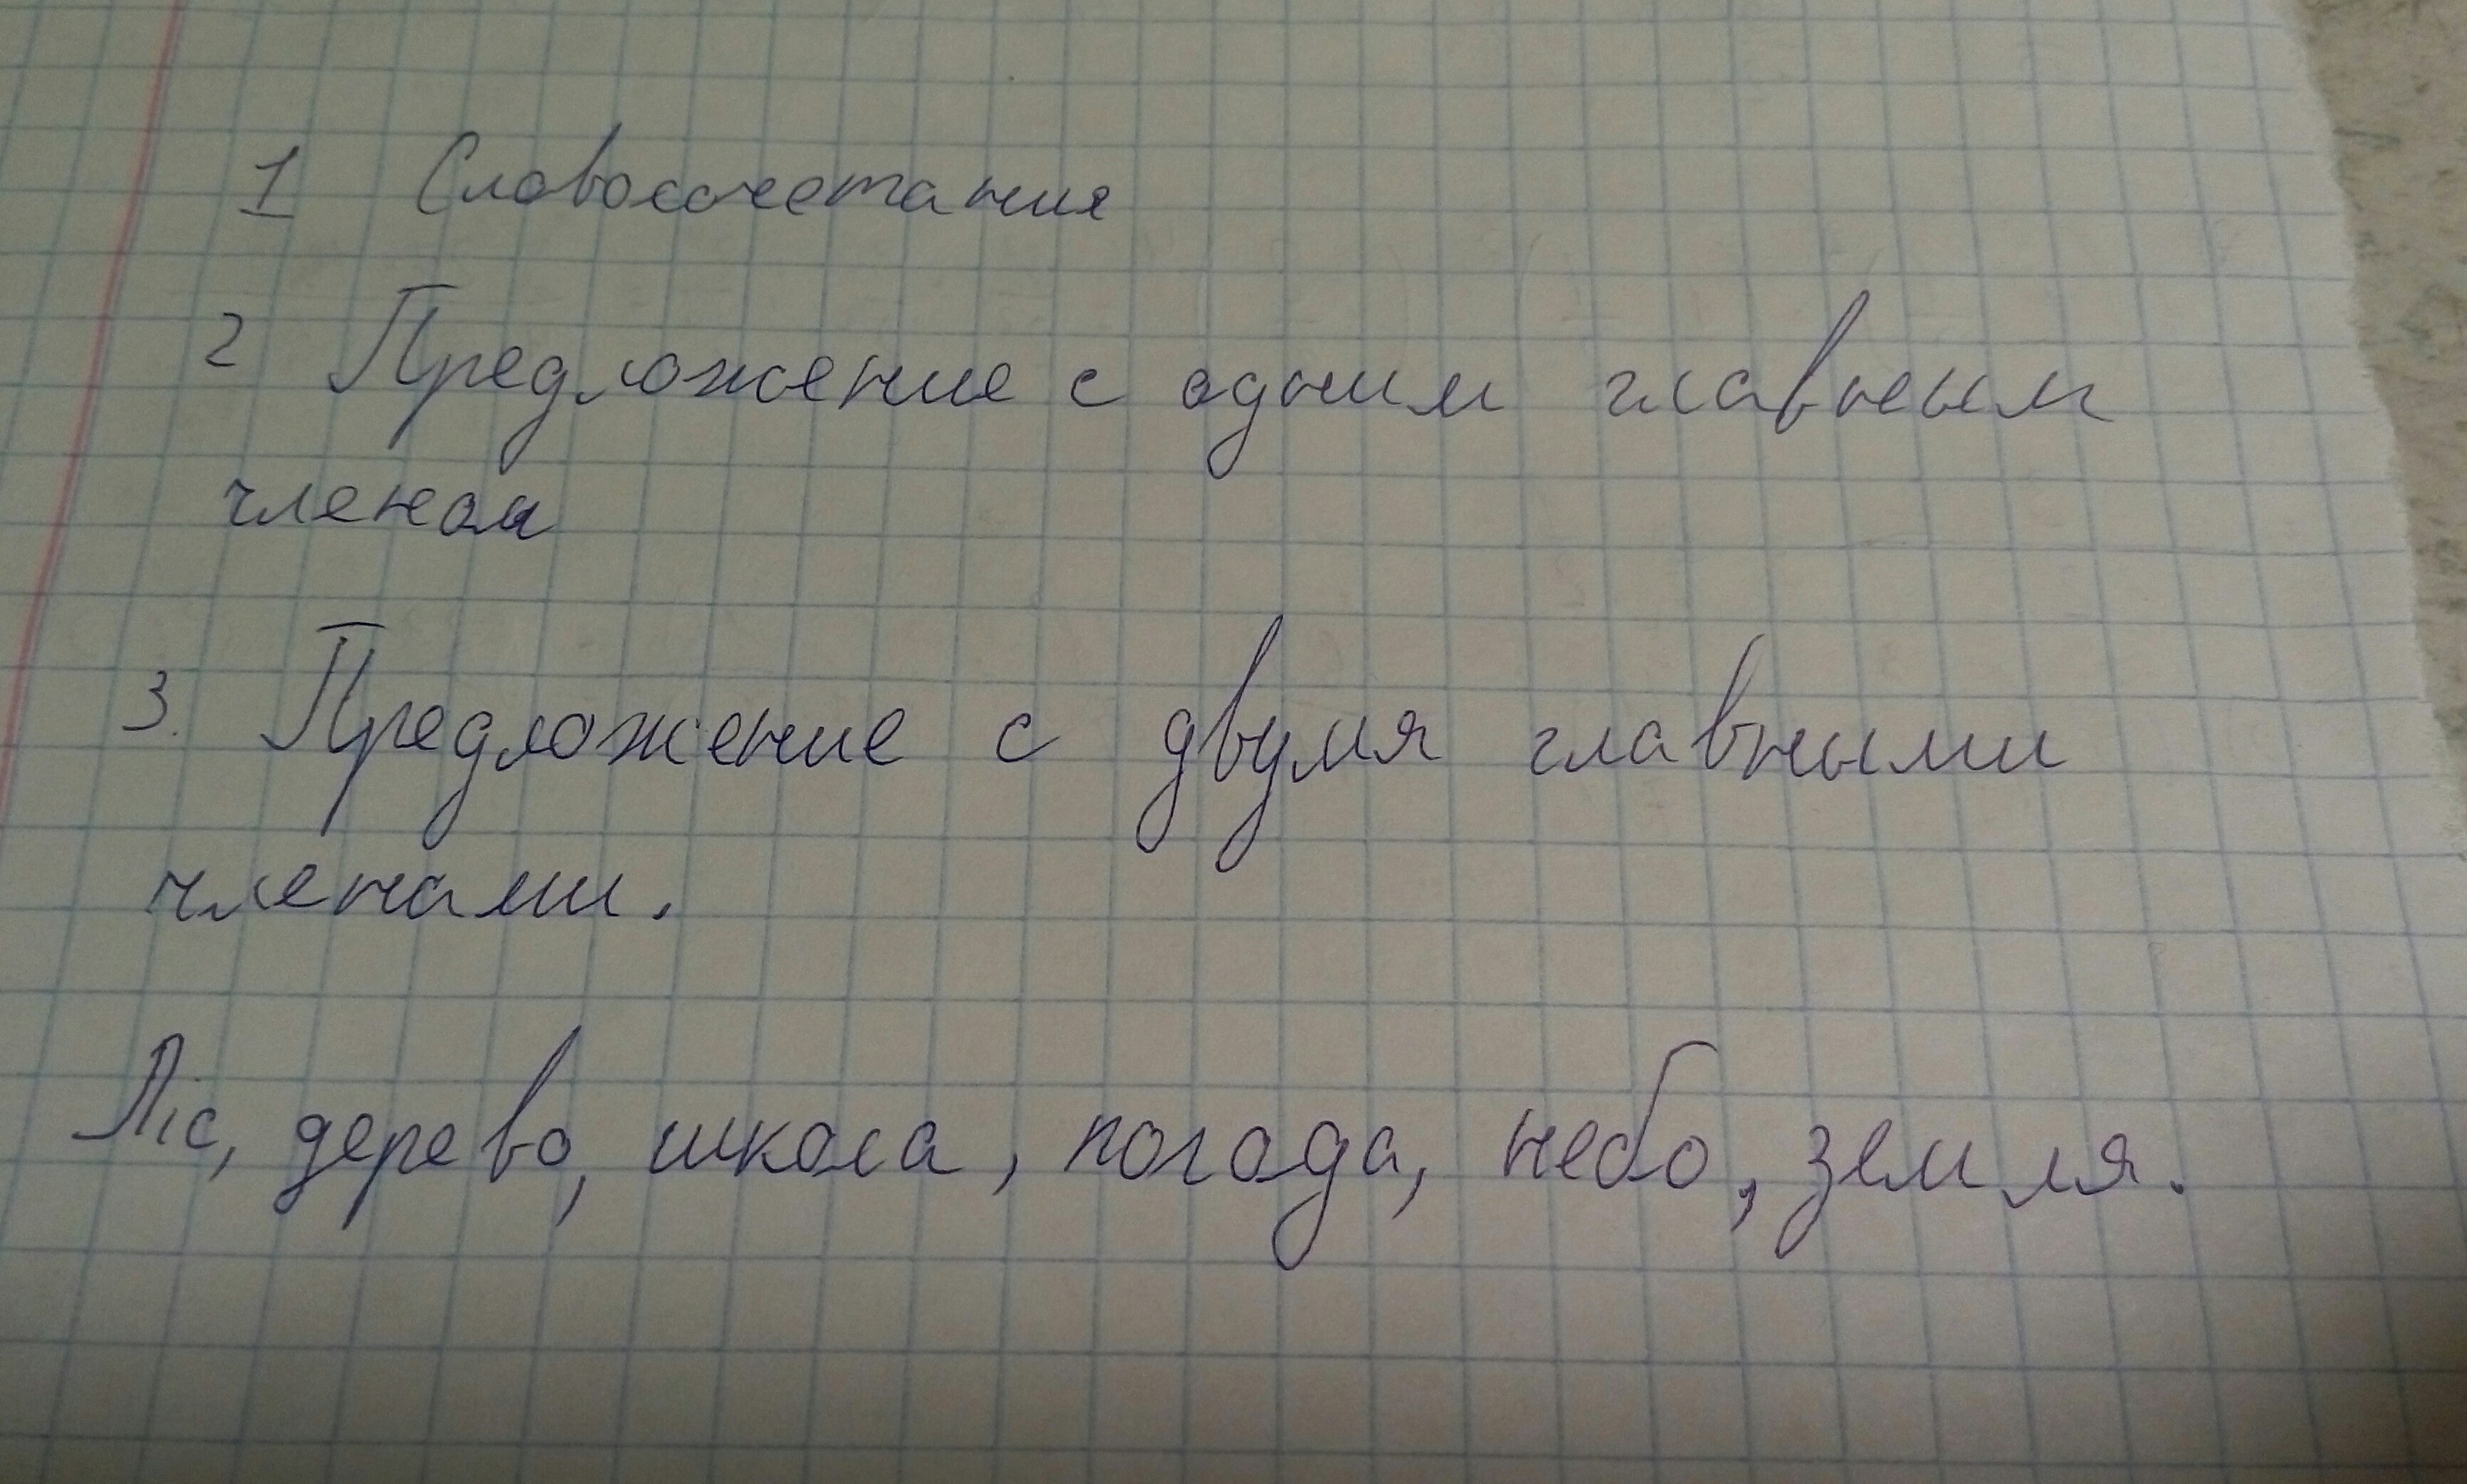 1 Словосочетания
2 Предложение с одним главным
членом
3. Предложение с двумя главными
членами.
Ліс, дерево, школа, погода, небо, земля.